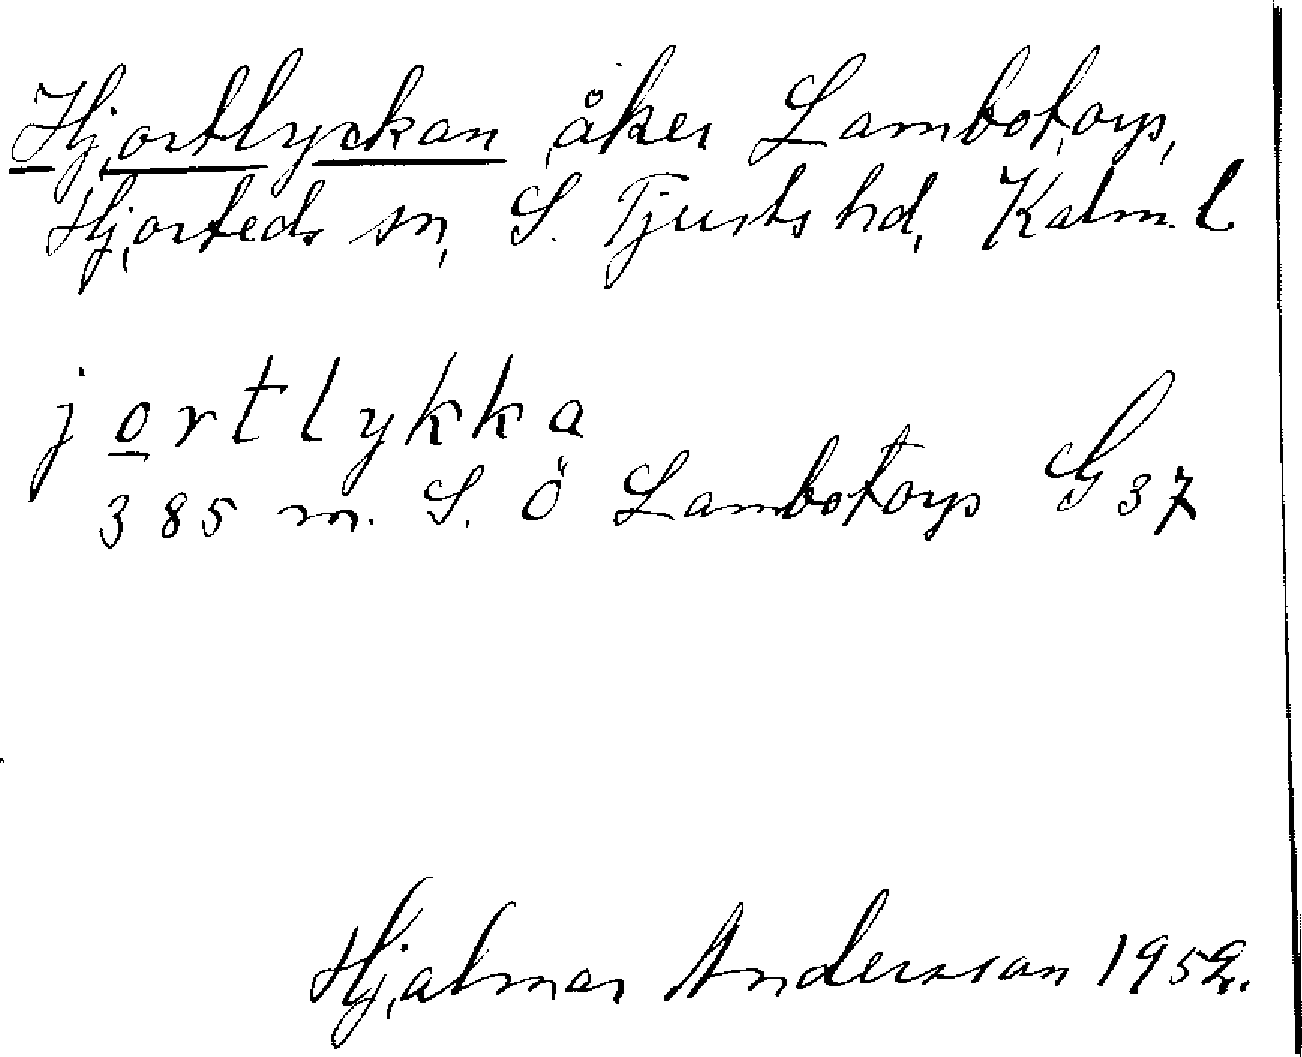 Hjortlyckan åker Lambotorp,
Hjorteds sn, S. Tjusts hd, Kalm. l
jortlykka
385 m. S. Ö Lambotorp G 37
Hjalmar Andersson 1952.